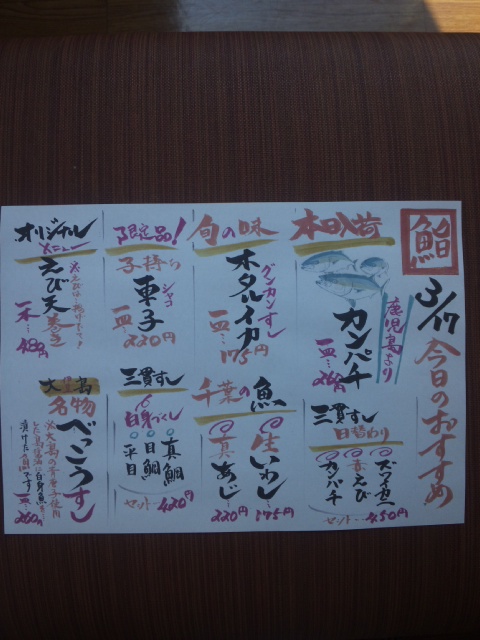 鮨
3/17 今日のおすすめ
本日入荷
鹿児島より
カンパチ
一皿…260円
旬の味
グンカンすし
ホタルイカ
一皿…175円
限定品!
子持ち
シャコ
車子
一皿…220円
オリジナル
メニュー
えび天巻き
一本…480円
三貫すし
日替わり
ズワイ蟹
赤えび
カンパチ
セット…450円
千葉の魚
生いわし
175円
真あじ
220円
三貫すし
白身づくし
真鯛
目鯛
平目
セット…420円
大島
名物
べっこうすし
※大島の青唐辛子使用
した島醤油に白身魚を
漬けた鮨です
一皿…260円